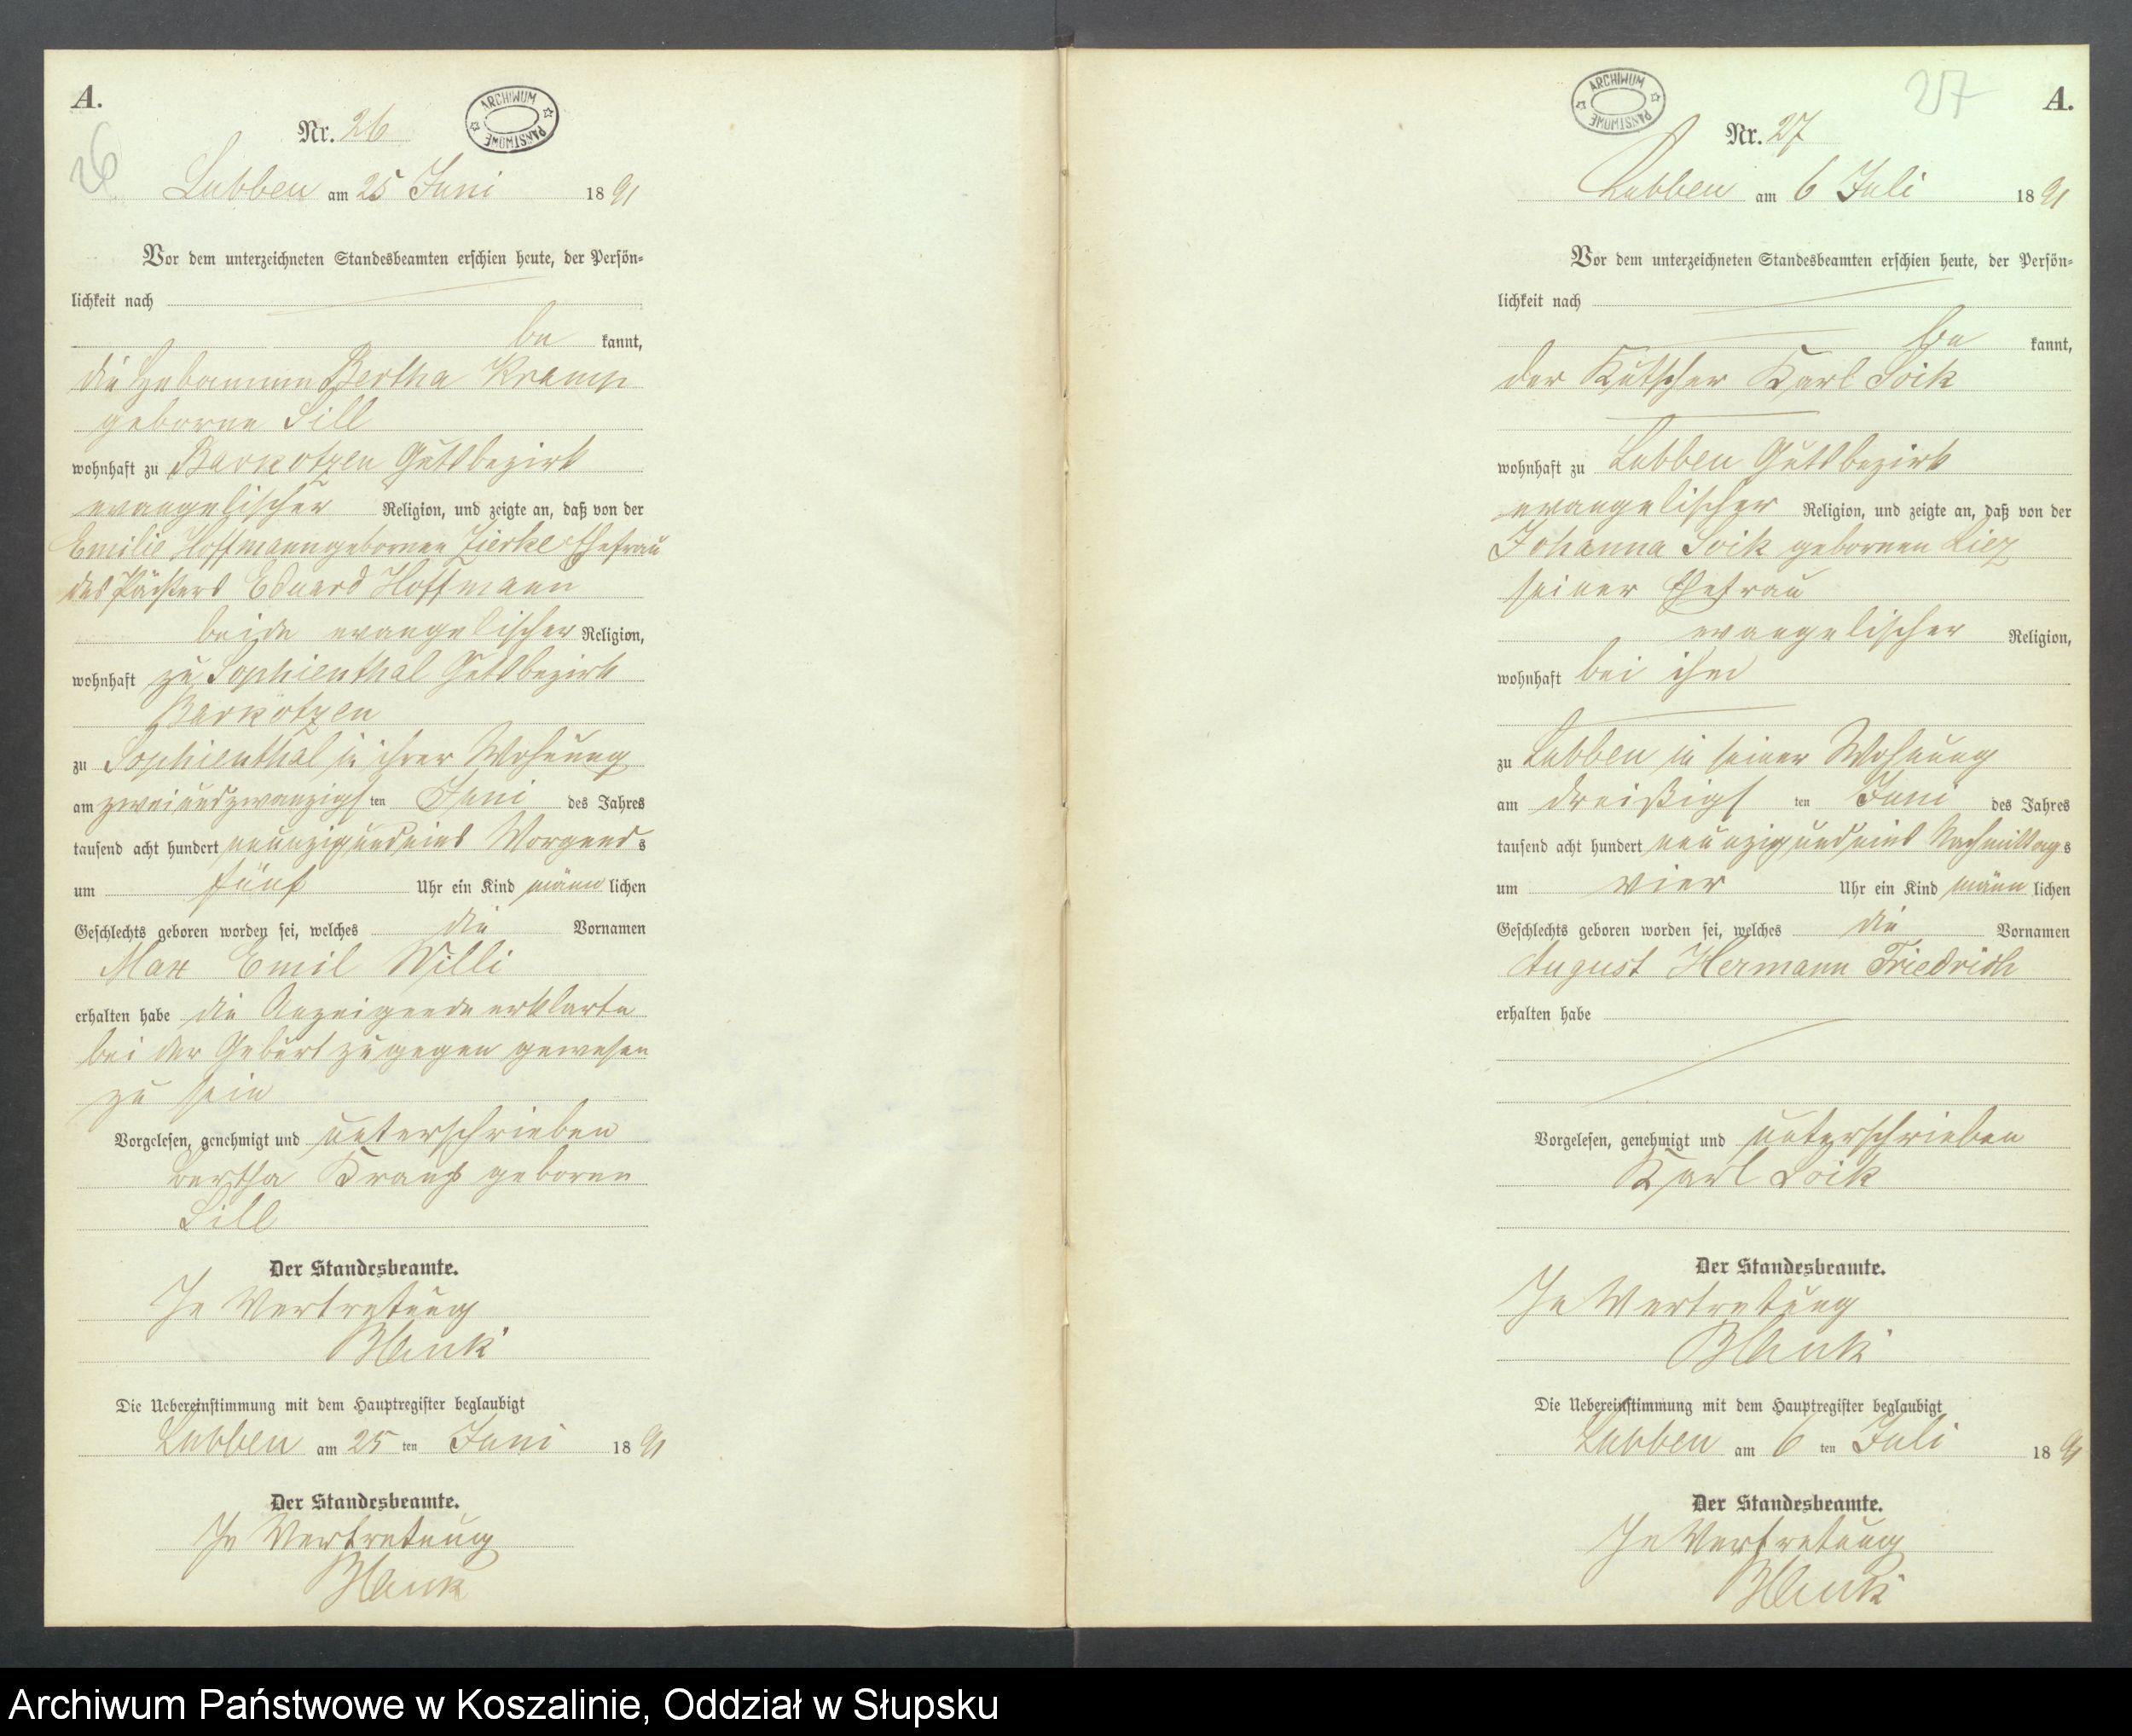 A.
26
Nr. 26
ARCHIWUM PAŃSTWOWE
Lubben am 25 Juni 1891
Vor dem unterzeichneten Standesbeamten erschien heute, der Persön=
lichkeit nach
be kannt,
die Hebamme Bertha Kramp
geborne Sill
wohnhaft zu Barkotzen Gutsbezirk
evangelischer Religion, und zeigte an, daß von der
Emilie Hoffmann gebornen Zierke Ehefrau
des Pächters Eduard Hoffmann
beide evangelischer Religion,
wohnhaft zu Sophienthal Gutsbezirk
Barkotzen
zu Sophienthal in ihrer Wohnung
am zweiundzwanzigs ten Juni des Jahres
tausend acht hundert neunzig und eins Morgend s
um fünf Uhr ein Kind männ lichen
Geschlechts geboren worden sei, welches die Vornamen
Max Emil Willi
erhalten habe die Anzeigende erklarte
bei der Geburt zugegen gewesen
zu sein
Vorgelesen, genehmigt und unterschrieben
Bertha Kramp geborne
Sill
Der Standesbeamte.
In Vertretung
Blank
Die Uebereinstimmung mit dem Hauptregister beglaubigt
Lubben am 25 ten Juni 1891
Der Standesbeamte.
In Vertretung
Blank
27
A.
ARCHIWUM PAŃSTWOWE
Nr. 27
Lubben am 6 Juli 1891
Vor dem unterzeichneten Standesbeamten erschien heute, der Persön=
lichkeit nach
be kannt,
der Kutscher Karl Loik
wohnhaft zu Lubben Gutsbezirk
evangelischer Religion, und zeigte an, daß von der
Johanna Loik gebornen Liez
seiner Ehefrau
evangelischer Religion,
wohnhaft bei ihm
zu Lubben in seiner Wohnung
am dreißigs ten Juni des Jahres
tausend acht hundert neunzig und eins Nachmittag s
um vier Uhr ein Kind männ lichen
Geschlechts geboren worden sei, welches die Vornamen
August Hermann Friedrich
erhalten habe
Vorgelesen, genehmigt und unterschrieben
Karl Loik
Der Standesbeamte.
In Vertretung
Blank
Die Uebereinstimmung mit dem Hauptregister beglaubigt
Lubben am 6 ten Juli 1891
Der Standesbeamte.
In Vertretung
Blank
Archiwum Państwowe w Koszalinie, Oddział w Słupsku